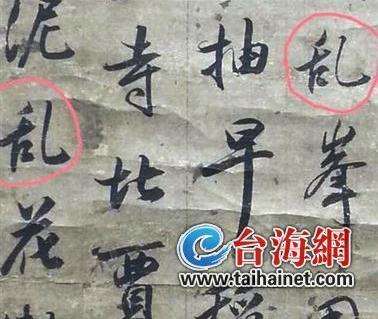 乱峯
抽早稻
寺北賈
泥乱花
台海網
www.taihainet.com